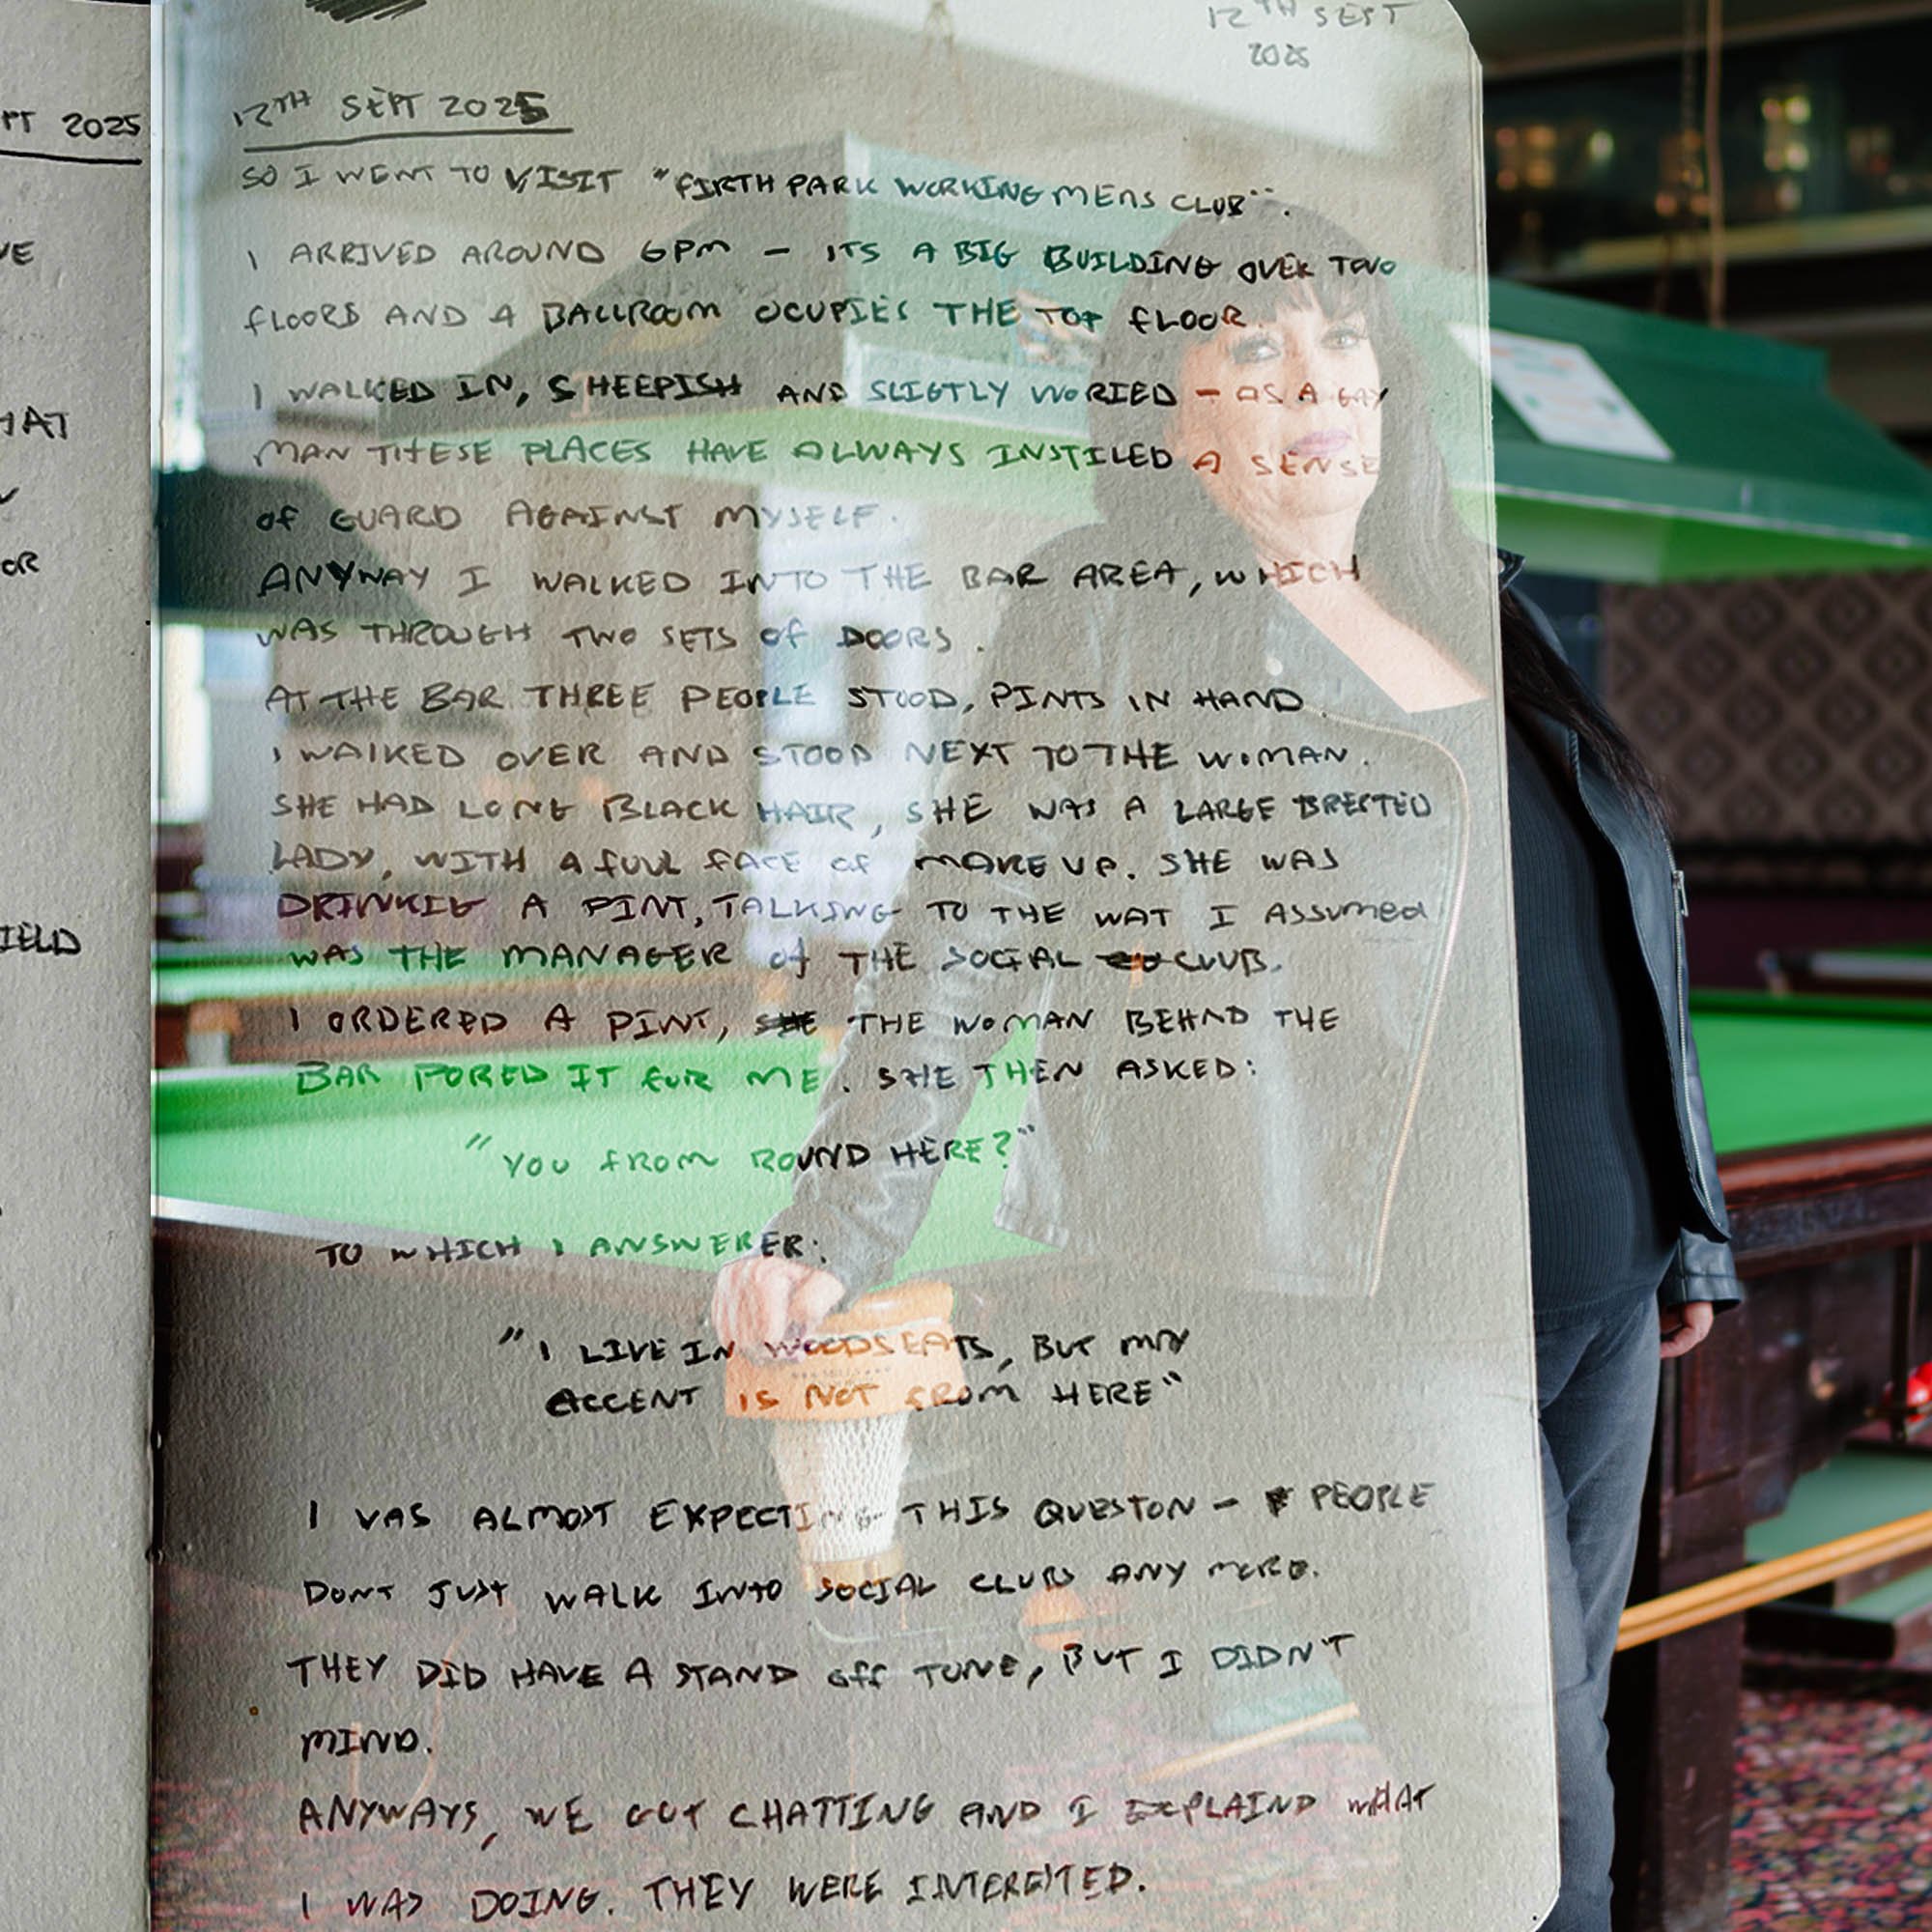 PT 2025
VE
HAT
OR
IELD
12TH SEPT
2025
12TH SEPT 2025
SO I WENT TO VISIT "FIRTH PARK WORKING MENS CLUB".
I ARRIVED AROUND 6PM - ITS A BIG BUILDING OVER TWO
FLOORS AND A BALLROOM OCUPIES THE TOP FLOOR.
I WALKED IN, SHEEPISH AND SLIGTLY WORIED - AS A GAY
MAN THESE PLACES HAVE ALWAYS INSTILED A SENSE
OF GUARD AGAINST MYSELF.
ANYWAY I WALKED INTO THE BAR AREA, WHICH
WAS THROUGH TWO SETS OF DOORS.
AT THE BAR THREE PEOPLE STOOD, PINTS IN HAND.
I WALKED OVER AND STOOD NEXT TO THE WOMAN.
SHE HAD LONG BLACK HAIR, SHE WAS A LARGE BRESTED
LADY, WITH A FULL FACE OF MAKE UP. SHE WAS
DRINKIG A PINT, TALKING TO THE WAT I ASSUMED
WAS THE MANAGER OF THE SOCIAL CLUB.
I ORDERED A PINT, SHE THE WOMAN BEHND THE
BAR PORED IT FUR ME. SHE THEN ASKED:
"YOU FROM ROUND HERE?"
TO WHICH I ANSWERER:
"I LIVE IN WOODSEATS, BUT MY
ACCENT IS NOT FROM HERE"
I WAS ALMOST EXPECTING THIS QUESTON - PEOPLE
DONT JUST WALK INTO SOCIAL CLUBS ANY MORE.
THEY DID HAVE A STAND OFF TONE, BUT I DIDN'T
MIND.
ANYWAYS, WE GOT CHATTING AND I EXPLAIND WHAT
I WAS DOING. THEY WERE INTERESTED.